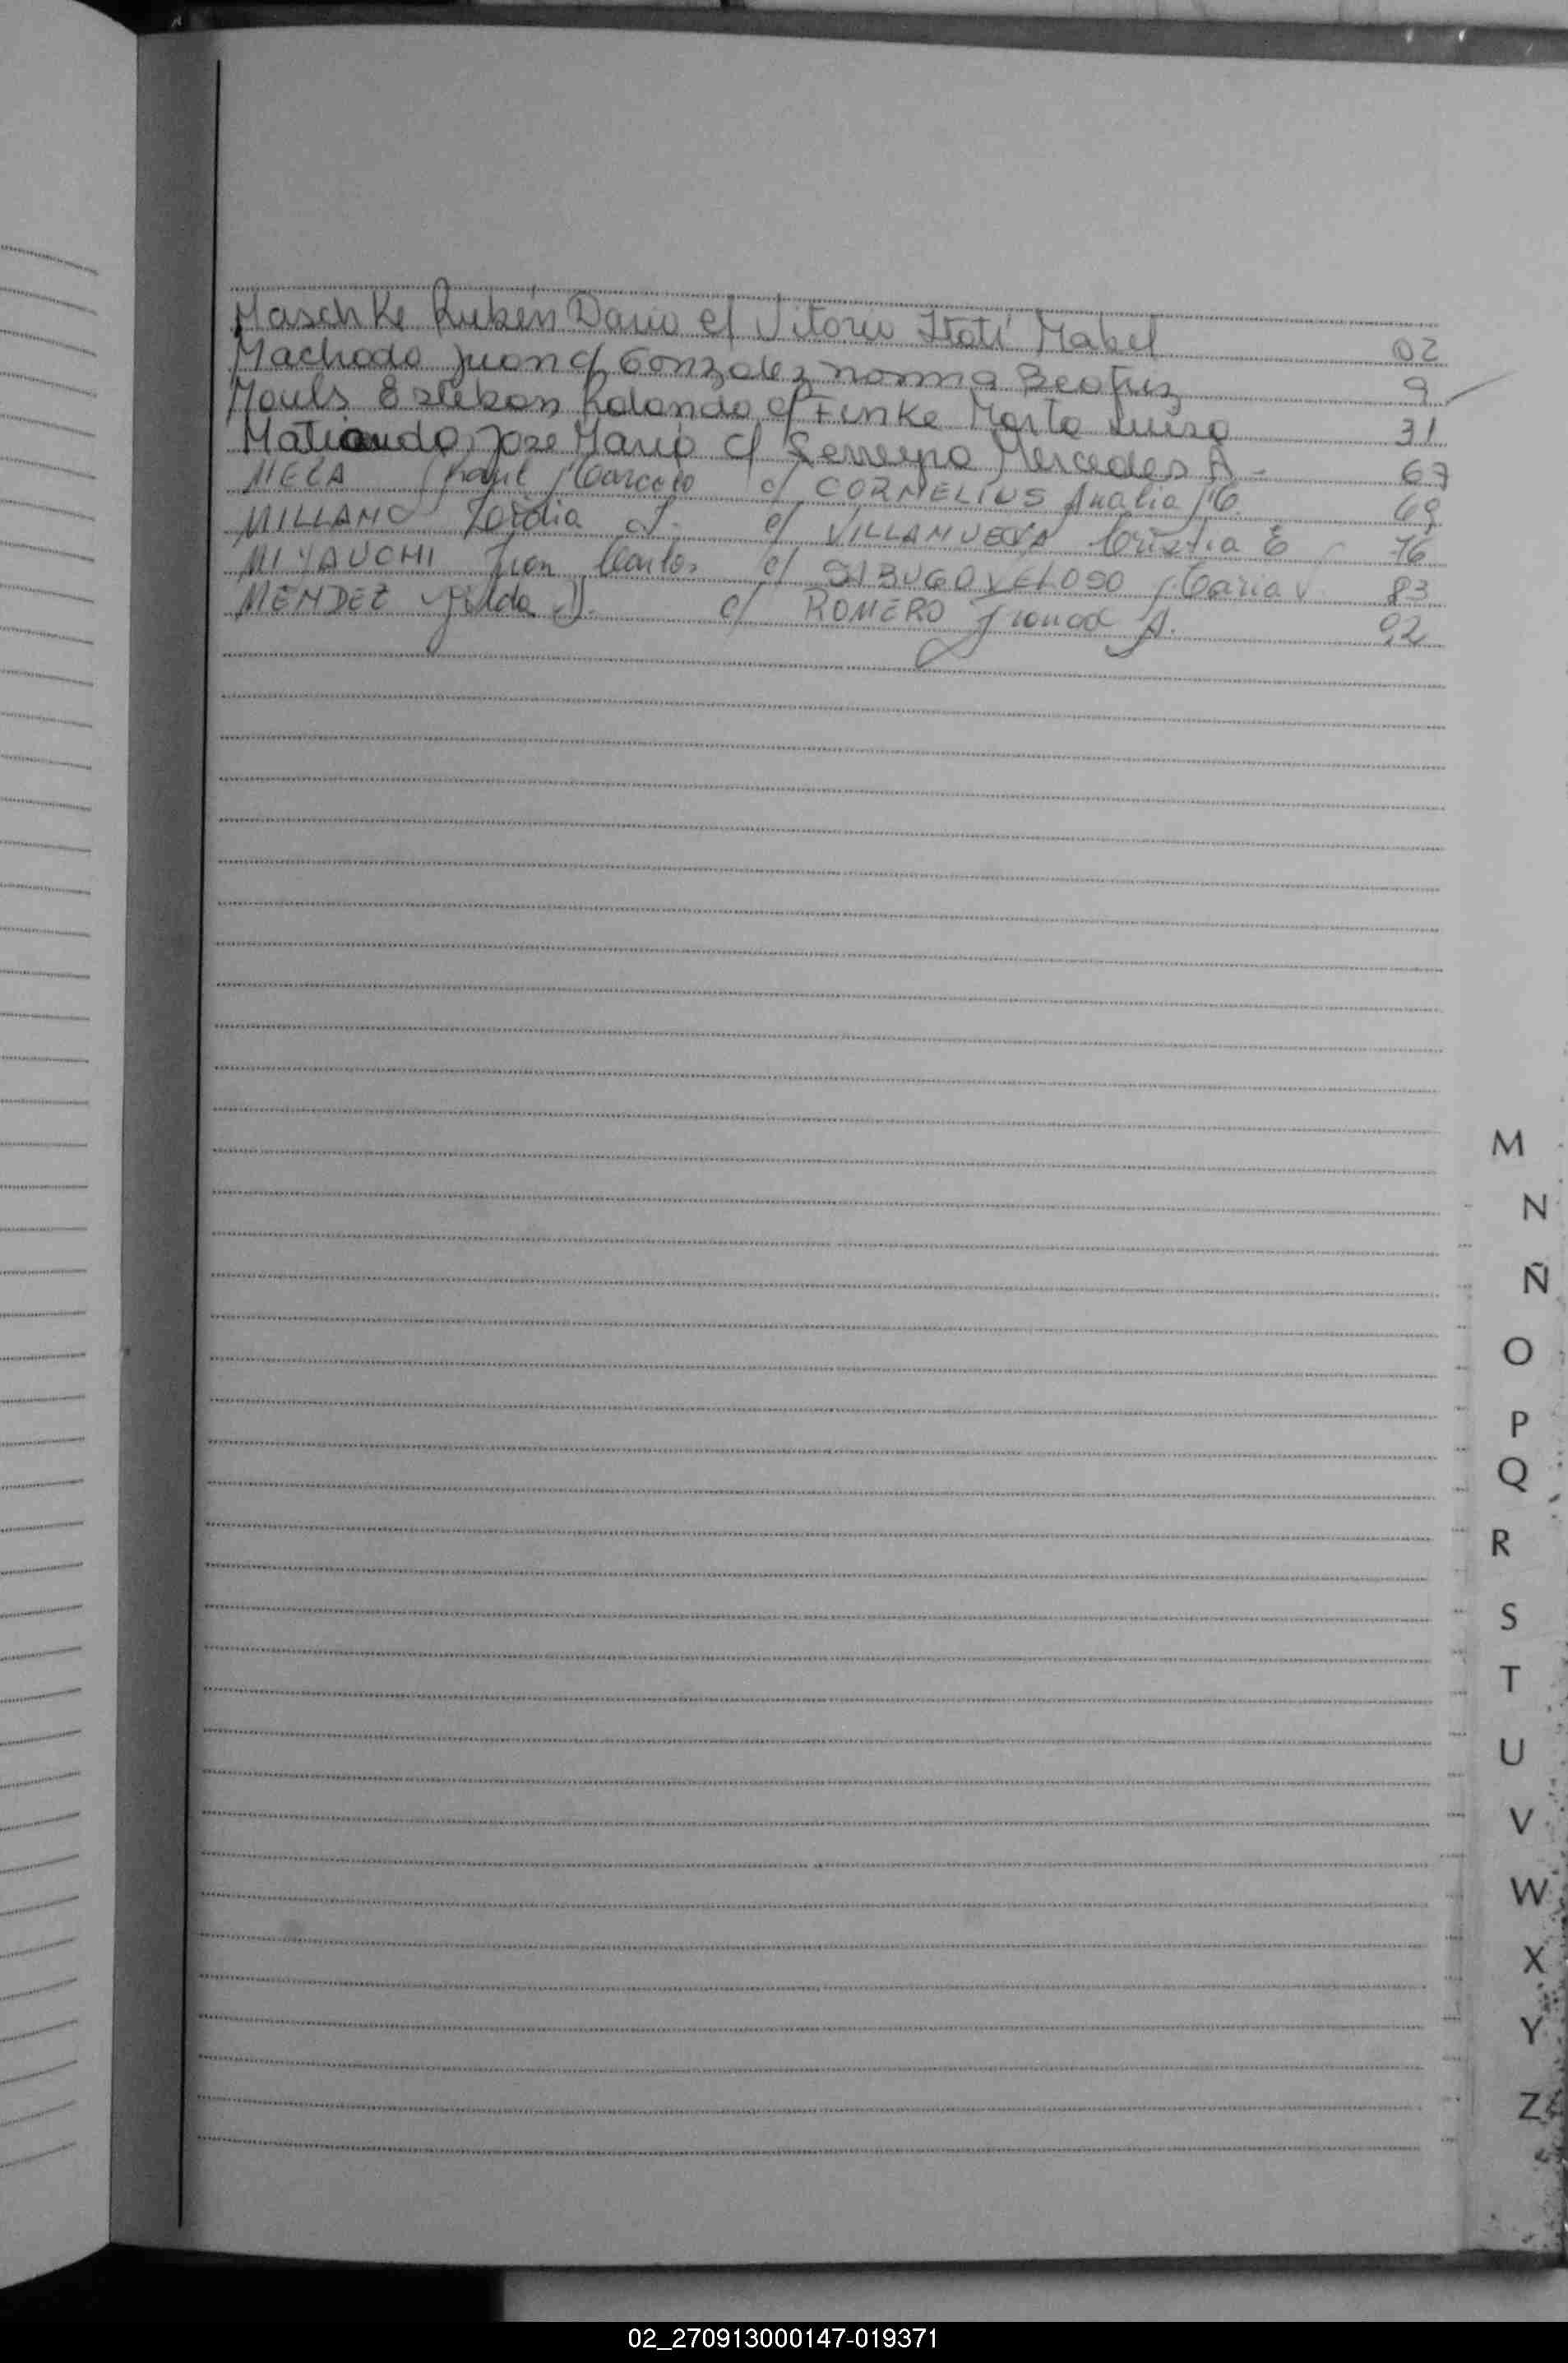 Maschke Rubén Dario c/ Vitorio Itatí Mabel 02
Machado Juan c/ Gonzalez Norma Beatriz 9
Mouls Esteban Rolando c/ Finke Marta Luisa 31
José Mario c/ Mercedes A- 67
MEZA Marcelo c/ CORNELIUS Analia 69
MILLANO c/ VILLANUEVA E 76
MIYAUCHI Juan Carlos c/ Maria V 83
MENDEZ Gilda c/ ROMERO A. 92
M
N
Ñ
O
P
Q
R
S
T
U
V
W
X
Y
Z
02_270913000147-019371